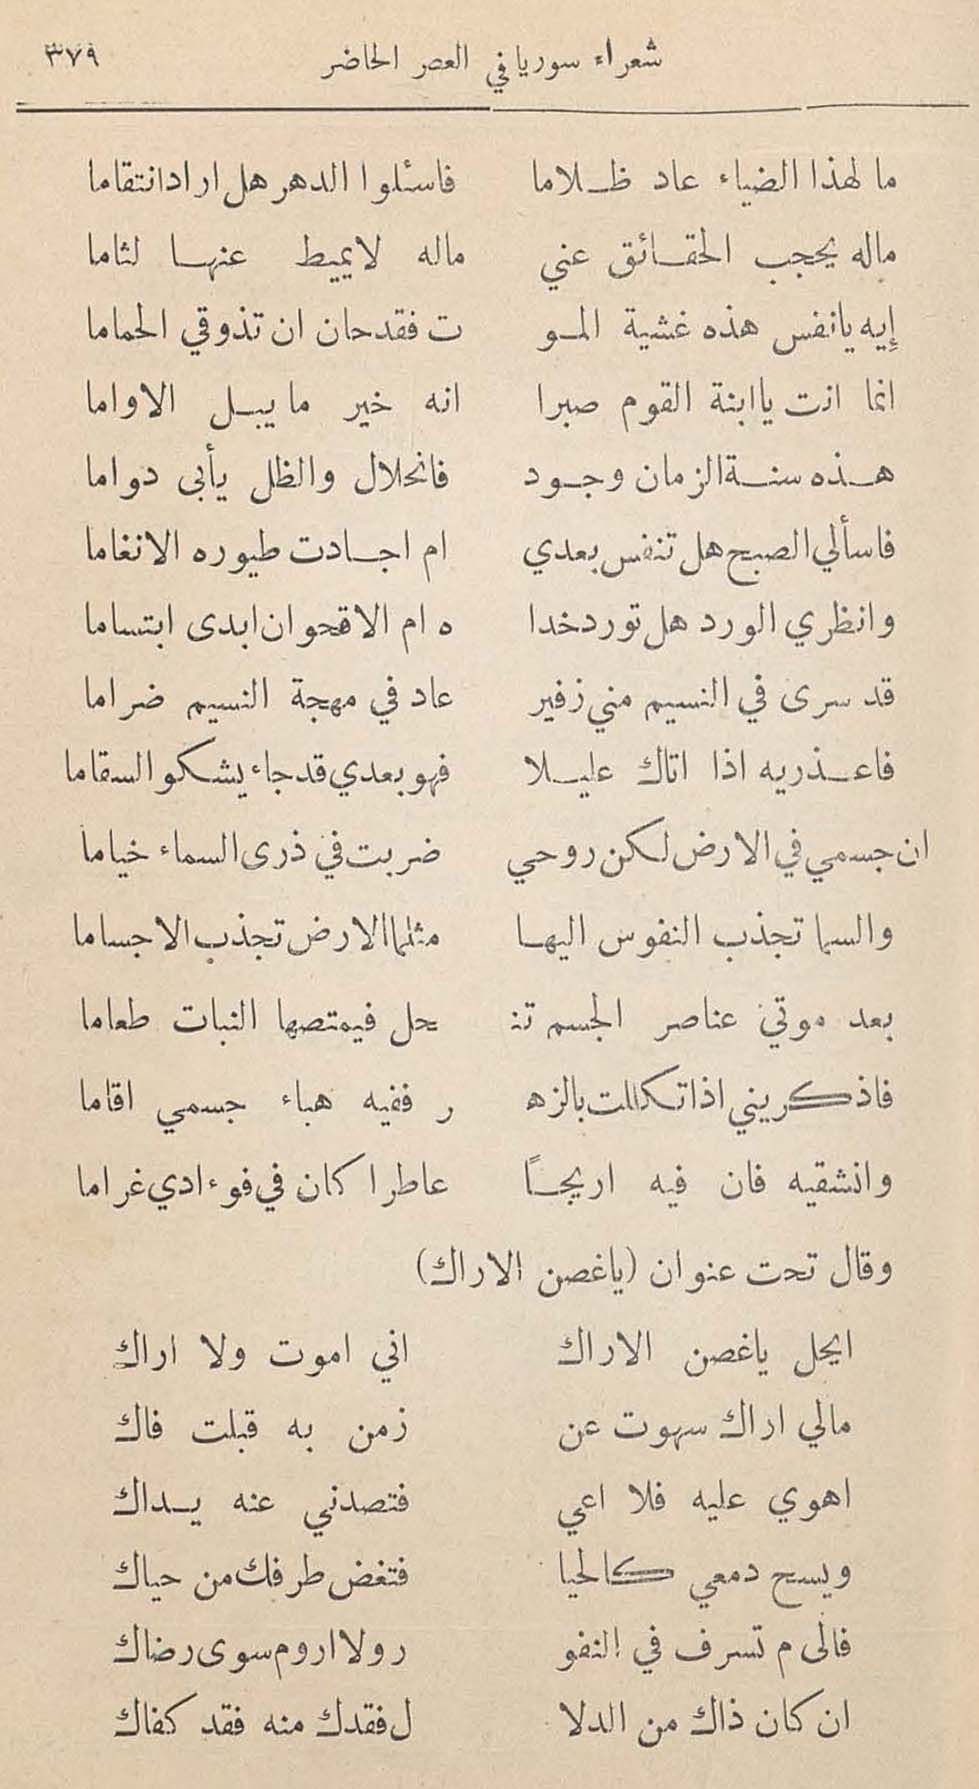 شعراء سوريا في العصر الحاضر ٣٧٩
ما لهذا الضياء عاد ظلاما فاسئلوا الدهر هل اراد انتقاما
ماله يحجب الحقائق عني ماله لا يميط عنها لثاما
إيه يا نفس هذه غشية المو ت فقد حان ان تذوقي الحماما
انما انت يا ابنة القوم صبرا انه خير ما يبل الاواما
هذه سنة الزمان وجود فانحلال والظل يأبى دواما
فاسألي الصبح هل تنفس بعدي ام اجادت طيوره الانغاما
وانظري الورد هل تورد خدا ه ام الاقحوان ابدى ابتساما
قد سرى في النسيم مني زفير عاد في مهجة النسيم ضراما
فاعذريه اذا اتاك عليلا فهو بعدي قد جاء يشكو السقاما
ان جسمي في الارض لكن روحي ضربت في ذرى السماء خياما
والسما تجذب النفوس اليها مثلما الارض تجذب الاجساما
بعد موتي عناصر الجسم تنـ حل فيمتصها النبات طعاما
فاذكريني اذا تكللت بالزهـ ر ففيه هباء جسمي اقاما
وانشقيه فان فيه اريجاً عاطرا كان في فوءادي غراما
وقال تحت عنوان (يا غصن الاراك)
ايحل يا غصن الاراك اني اموت ولا اراك
مالي اراك سهوت عن زمن به قبلت فاك
اهوي عليه فلا اعي فتصدني عنه يداك
ويسح دمعي كالحيا فتغض طرفك من حياك
فالى م تسرف في النفو ر ولا اروم سوى رضاك
ان كان ذاك من الدلا ل فقدك منه فقد كفاك